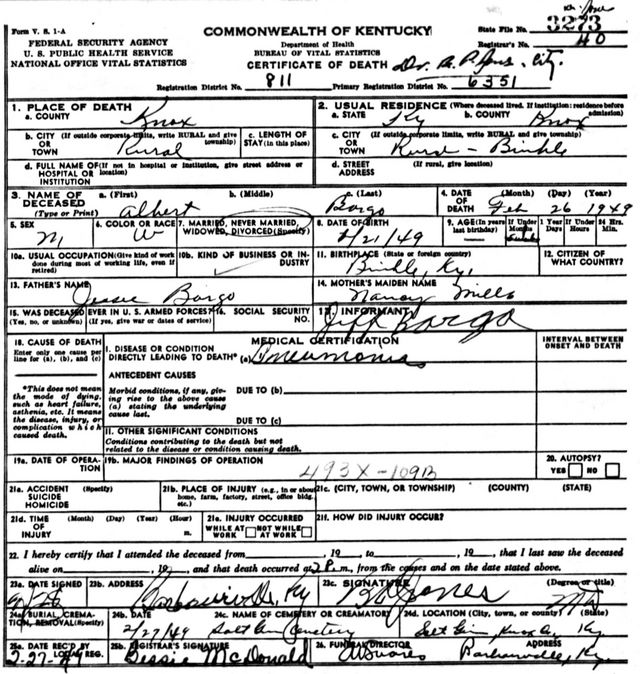 Form V. S. 1-A
FEDERAL SECURITY AGENCY
U. S. PUBLIC HEALTH SERVICE
NATIONAL OFFICE VITAL STATISTICS
COMMONWEALTH OF KENTUCKY
Department of Health
BUREAU OF VITAL STATISTICS
CERTIFICATE OF DEATH
State File No. 3273
Registrar's No. 40
Registration District No. 811 Primary Registration District No. 6351
1. PLACE OF DEATH
a. COUNTY Knox
2. USUAL RESIDENCE (Where deceased lived. If institution: residence before admission)
a. STATE Ky b. COUNTY Knox
b. CITY (If outside corporate limits, write RURAL and give township) OR TOWN Rural
c. LENGTH OF STAY (in this place)
c. CITY (If outside corporate limits, write RURAL and give township) OR TOWN Rural -
d. FULL NAME OF (If not in hospital or institution, give street address or location) HOSPITAL OR INSTITUTION
d. STREET ADDRESS (If rural, give location)
3. NAME OF DECEASED (Type or Print) a. (First) Albert b. (Middle) c. (Last) Bargo
4. DATE OF DEATH (Month) (Day) (Year) Feb 26 1949
5. SEX M
6. COLOR OR RACE W
7. MARRIED, NEVER MARRIED, WIDOWED, DIVORCED (Specify)
8. DATE OF BIRTH 2/21/49
9. AGE (In years last birthday) If Under 1 Year Months Days If Under 24 Hrs. Hour Min.
10a. USUAL OCCUPATION (Give kind of work done during most of working life, even if retired)
10b. KIND OF BUSINESS OR INDUSTRY
11. BIRTHPLACE (State or foreign country) Ky.
12. CITIZEN OF WHAT COUNTRY?
13. FATHER'S NAME Jessie Bargo
14. MOTHER'S MAIDEN NAME Nancy Mills
15. WAS DECEASED EVER IN U. S. ARMED FORCES? (Yes, no, or unknown) (If yes, give war or dates of service)
16. SOCIAL SECURITY NO.
17. INFORMANT Jeff Bargo
18. CAUSE OF DEATH
Enter only one cause per line for (a), (b), and (c)
*This does not mean the mode of dying, such as heart failure, asthenia, etc. It means the disease, injury, or complication which caused death.
MEDICAL CERTIFICATION
I. DISEASE OR CONDITION DIRECTLY LEADING TO DEATH* (a) Pneumonia
INTERVAL BETWEEN ONSET AND DEATH
ANTECEDENT CAUSES
Morbid conditions, if any, giving rise to the above cause (a) stating the underlying cause last.
DUE TO (b)
DUE TO (c)
II. OTHER SIGNIFICANT CONDITIONS
Conditions contributing to the death but not related to the disease or condition causing death.
19a. DATE OF OPERATION
19b. MAJOR FINDINGS OF OPERATION
493X-109B
20. AUTOPSY? YES NO
21a. ACCIDENT SUICIDE HOMICIDE (Specify)
21b. PLACE OF INJURY (e.g., in or about home, farm, factory, street, office bldg. etc.)
21c. (CITY, TOWN, OR TOWNSHIP) (COUNTY) (STATE)
21d. TIME OF INJURY (Month) (Day) (Year) (Hour) m.
21e. INJURY OCCURRED WHILE AT WORK NOT WHILE AT WORK
21f. HOW DID INJURY OCCUR?
22. I hereby certify that I attended the deceased from , 19 to , 19 that I last saw the deceased
alive on , 19 , and that death occurred at 2 P. m., from the causes and on the date stated above.
23a. DATE SIGNED
23b. ADDRESS Barbourville, Ky
23c. SIGNATURE Jones (Degree or title) MD
24a. BURIAL, CREMATION, REMOVAL (Specify)
24b. DATE 2/27/49
24c. NAME OF CEMETERY OR CREMATORY Salt Gum Cemetery
24d. LOCATION (City, town, or county) (State) Salt Gum Knox Co, Ky
25a. DATE REC'D BY LOCAL REG. 2-27-49
25b. REGISTRAR'S SIGNATURE Bessie McDonald
26. FUNERAL DIRECTOR ADDRESS Barbourville, Ky.